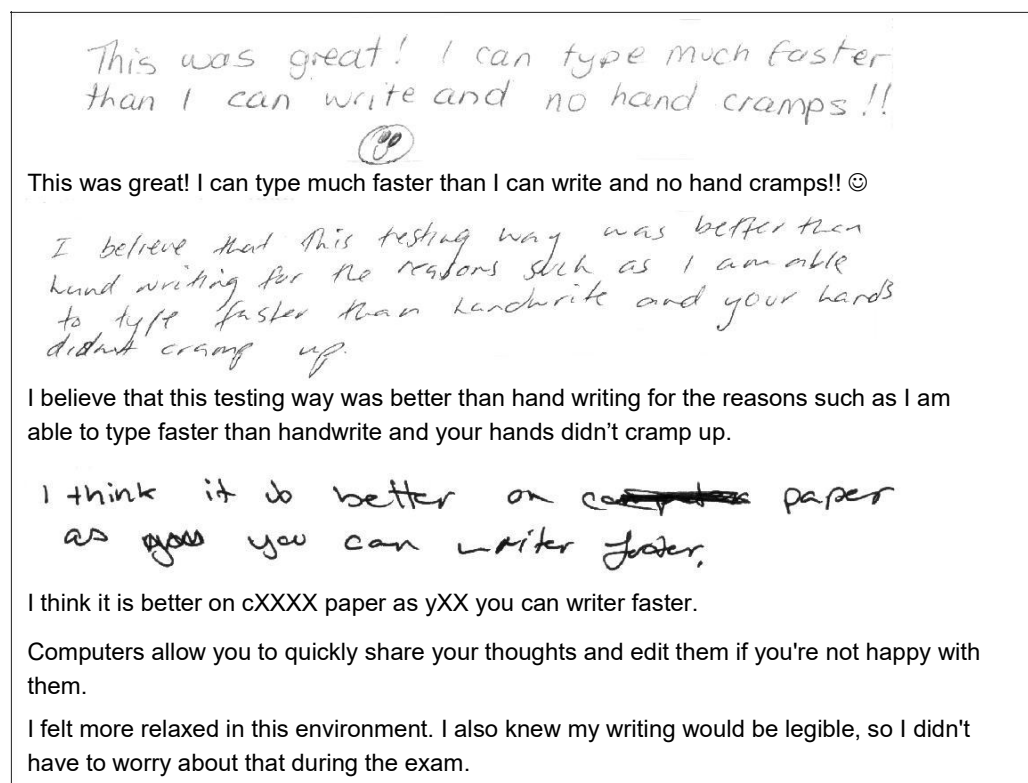 This was great! I can type much faster
than I can write and no hand cramps!!
This was great! I can type much faster than I can write and no hand cramps!! ☺
I believe that this testing way was better then
hand writing for the reasons such as I am able
to type faster than handwrite and your hands
didnt cramp up.
I think it is better on paper
as you can writer faster.
I believe that this testing way was better than hand writing for the reasons such as I am
able to type faster than handwrite and your hands didn’t cramp up.
I think it is better on cXXXX paper as yXX you can writer faster.
Computers allow you to quickly share your thoughts and edit them if you're not happy with
them.
I felt more relaxed in this environment. I also knew my writing would be legible, so I didn't
have to worry about that during the exam.